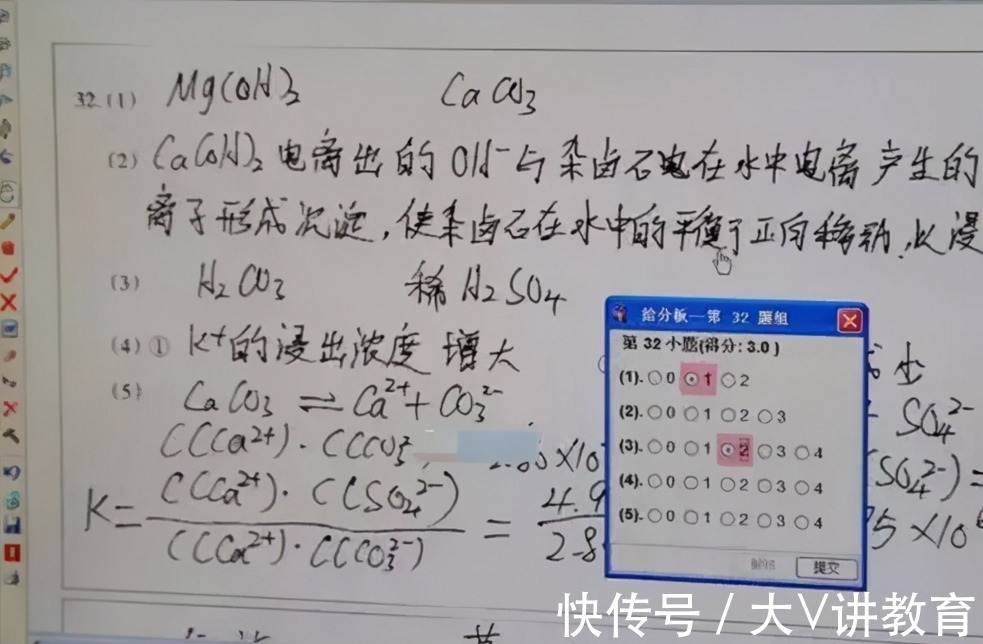 32.(1) Mg(OH)2 CaCO3
(2) Ca(OH)2 电离出的OH-与杂卤石电在水中电离产生的
离子形成沉淀,使杂卤石在水中的平衡于正向移动,
(3) H2CO3 稀H2SO4
(4) ① K+的浸出浓度增大
(5) CaCO3 ⇌ Ca2+ + CO32-
SO42-
C(Ca2+)·C(CO32-
×10
K = C(Ca2+)·C(SO42-) / C(Ca2+)·C(CO32-) = 4.9 / 2.8
(SO42-)=
5×10
给分板—第 32 题组
第 32 小题(得分: 3.0 )
(1). 0 1 2
(2). 0 1 2 3
(3). 0 1 2 3 4
(4). 0 1 2 3 4
(5). 0 1 2 3 4
提交
快传号 / 大V讲教育